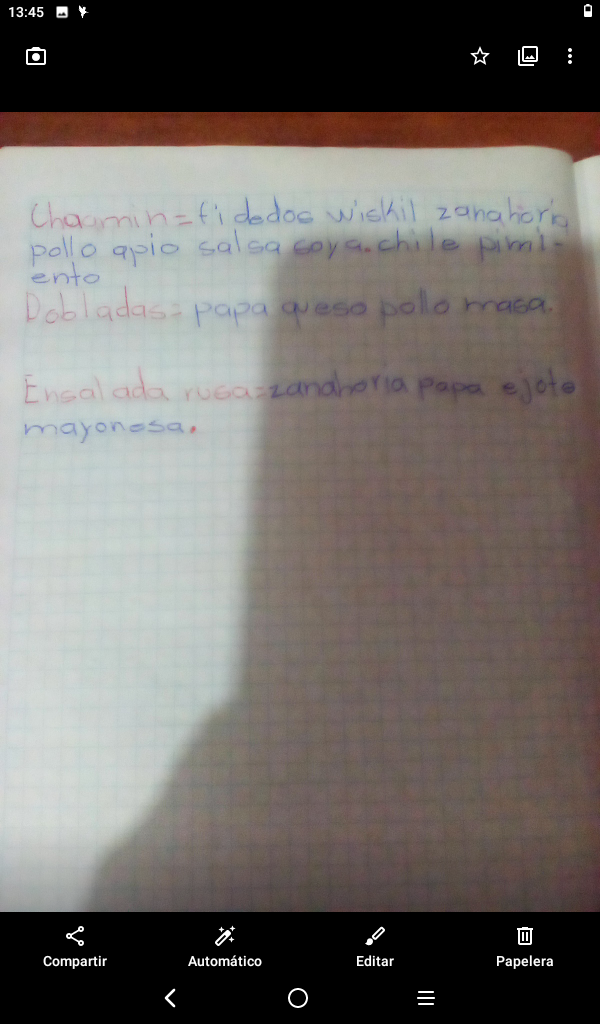 13:45
Chaomin=fidedos wiskil zanahoria
pollo apio salsa soya.chile pimi-
ento
Dobladas= papa queso pollo masa.
Ensalada rusa=zanahoria papa ejote
mayonesa.
Compartir
Automático
Editar
Papelera